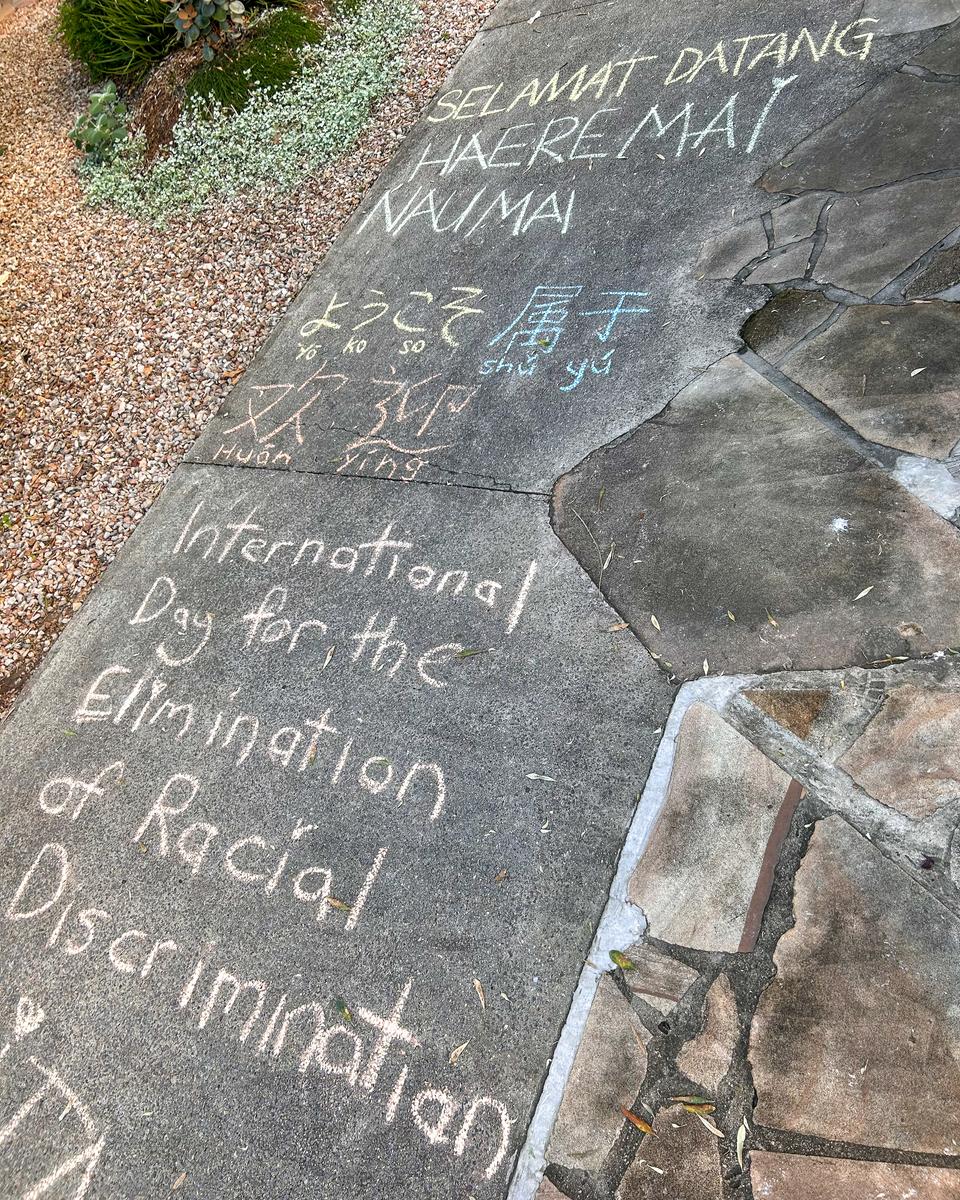 SELAMAT DATANG
HAERE MAI
NAU MAI
ようこそ 属于
Yō ko so shǔ yú
欢 迎
Huān Yíng
International
Day for the
Elimination
of Racial
Discrimination